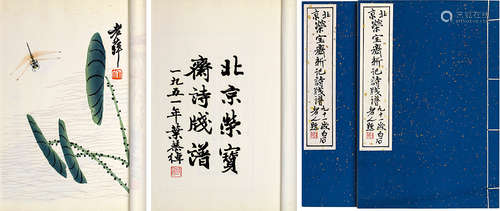 老萍
北京榮寶
齋詩牋譜
一九五一年葉恭綽
北京
榮宝齋新记詩牋譜
九十一歲白石
老人題
北京
榮宝齋新记詩牋譜
九十一歲白石
老人題